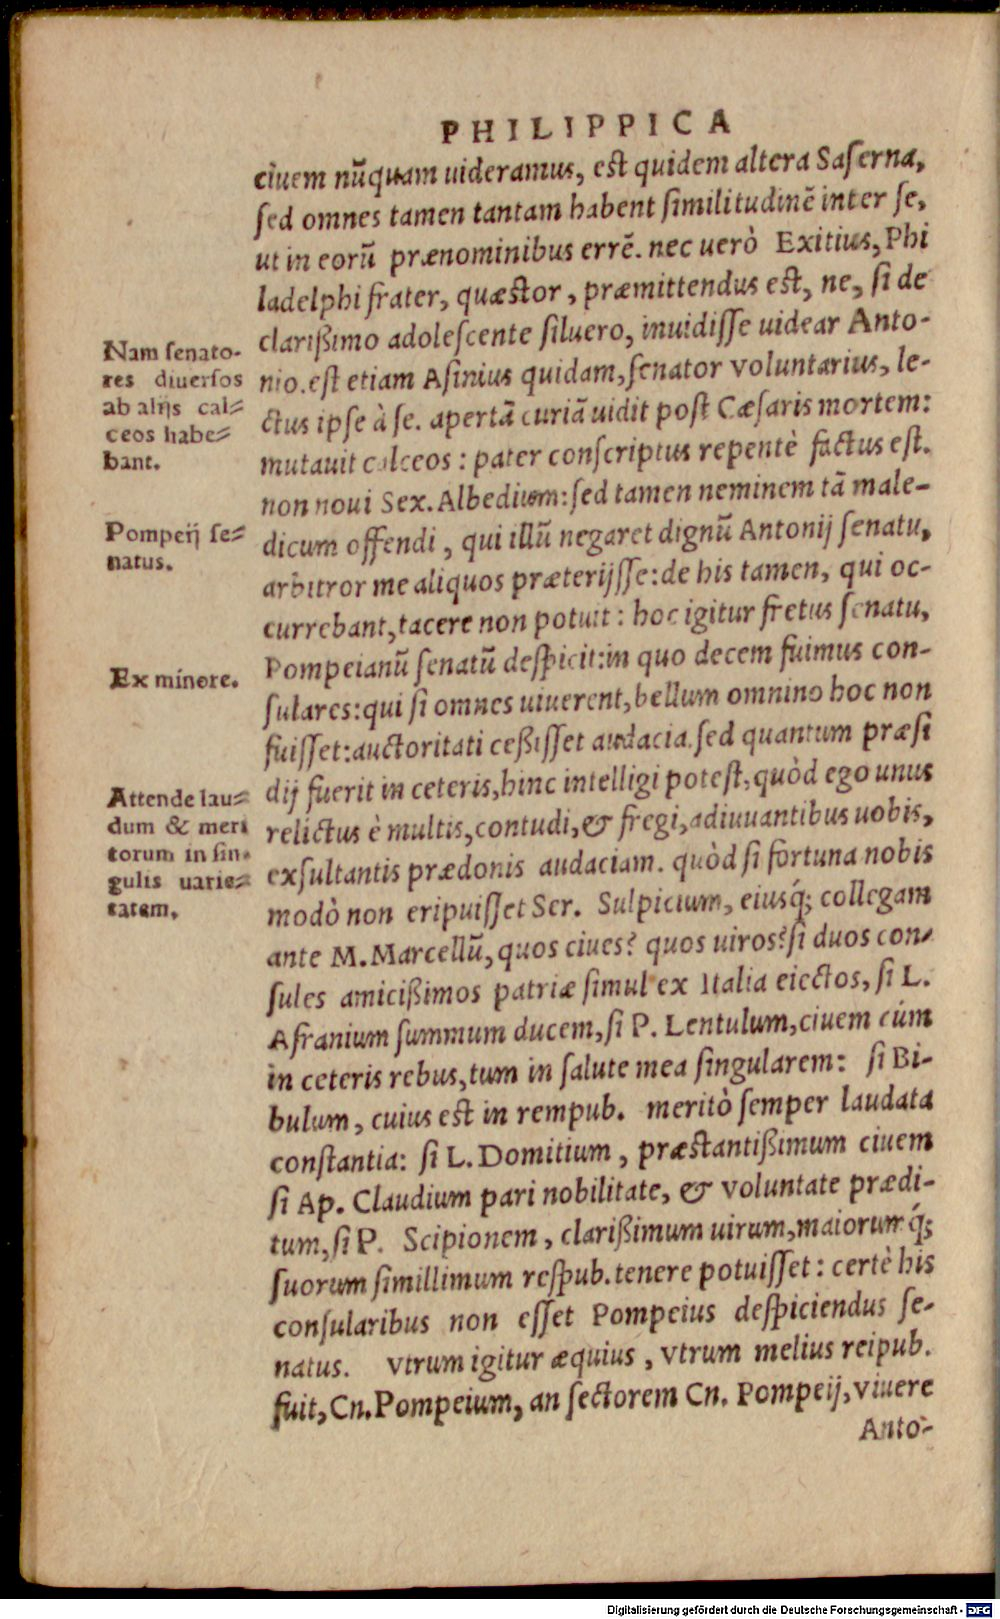 PHILIPPICA
ciuem nūquam uideramus, est quidem altera Saserna,
sed omnes tamen tantam habent similitudinē inter se,
ut in eorū prænominibus errē. nec uerò Exitius, Phi
ladelphi frater, quæstor, præmittendus est, ne, si de
clarißimo adolescente siluero, inuidisse uidear Anto-
nio. est etiam Asinius quidam, senator voluntarius, le-
ctus ipse à se. apertā curiā uidit post Cæsaris mortem:
mutauit calceos: pater conscriptus repentè factus est.
non noui Sex. Albedium: sed tamen neminem tā male-
dicum offendi, qui illū negaret dignū Antonij senatu,
arbitror me aliquos præterijsse: de his tamen, qui oc-
currebant, tacere non potuit: hoc igitur fretus senatu,
Pompeianū senatū despicit: in quo decem fuimus con-
sulares: qui si omnes uiuerent, bellum omnino hoc non
fuisset: auctoritati ceßisset audacia. sed quantum præsi
dij fuerit in ceteris, hinc intelligi potest, quòd ego unus
relictus è multis, contudi, & fregi, adiuuantibus uobis,
exsultantis prædonis audaciam. quòd si fortuna nobis
modò non eripuisset Ser. Sulpicium, eiusq́; collegam
ante M. Marcellū, quos ciues? quos uiros? si duos con-
sules amicißimos patriæ simul ex Italia eiectos, si L.
Afranium summum ducem, si P. Lentulum, ciuem cúm
in ceteris rebus, tum in salute mea singularem: si Bi-
bulum, cuius est in rempub. meritò semper laudata
constantia: si L. Domitium, præstantißimum ciuem
si Ap. Claudium pari nobilitate, & voluntate prædi-
tum, si P. Scipionem, clarißimum uirum, maiorumq́;
suorum simillimum respub. tenere potuisset: certè his
consularibus non esset Pompeius despiciendus se-
natus. Vtrum igitur æquius, Vtrum melius reipub.
fuit, Cn. Pompeium, an sectorem Cn. Pompeij, viuere
Anto-
Nam senato-
res diuersos
ab alijs cal-
ceos habe-
bant.
Pompeij se-
natus.
Ex minore.
Attende lau-
dum & meri
torum in sin-
gulis uarie-
tatem.
Digitalisierung gefördert durch die Deutsche Forschungsgemeinschaft - DFG